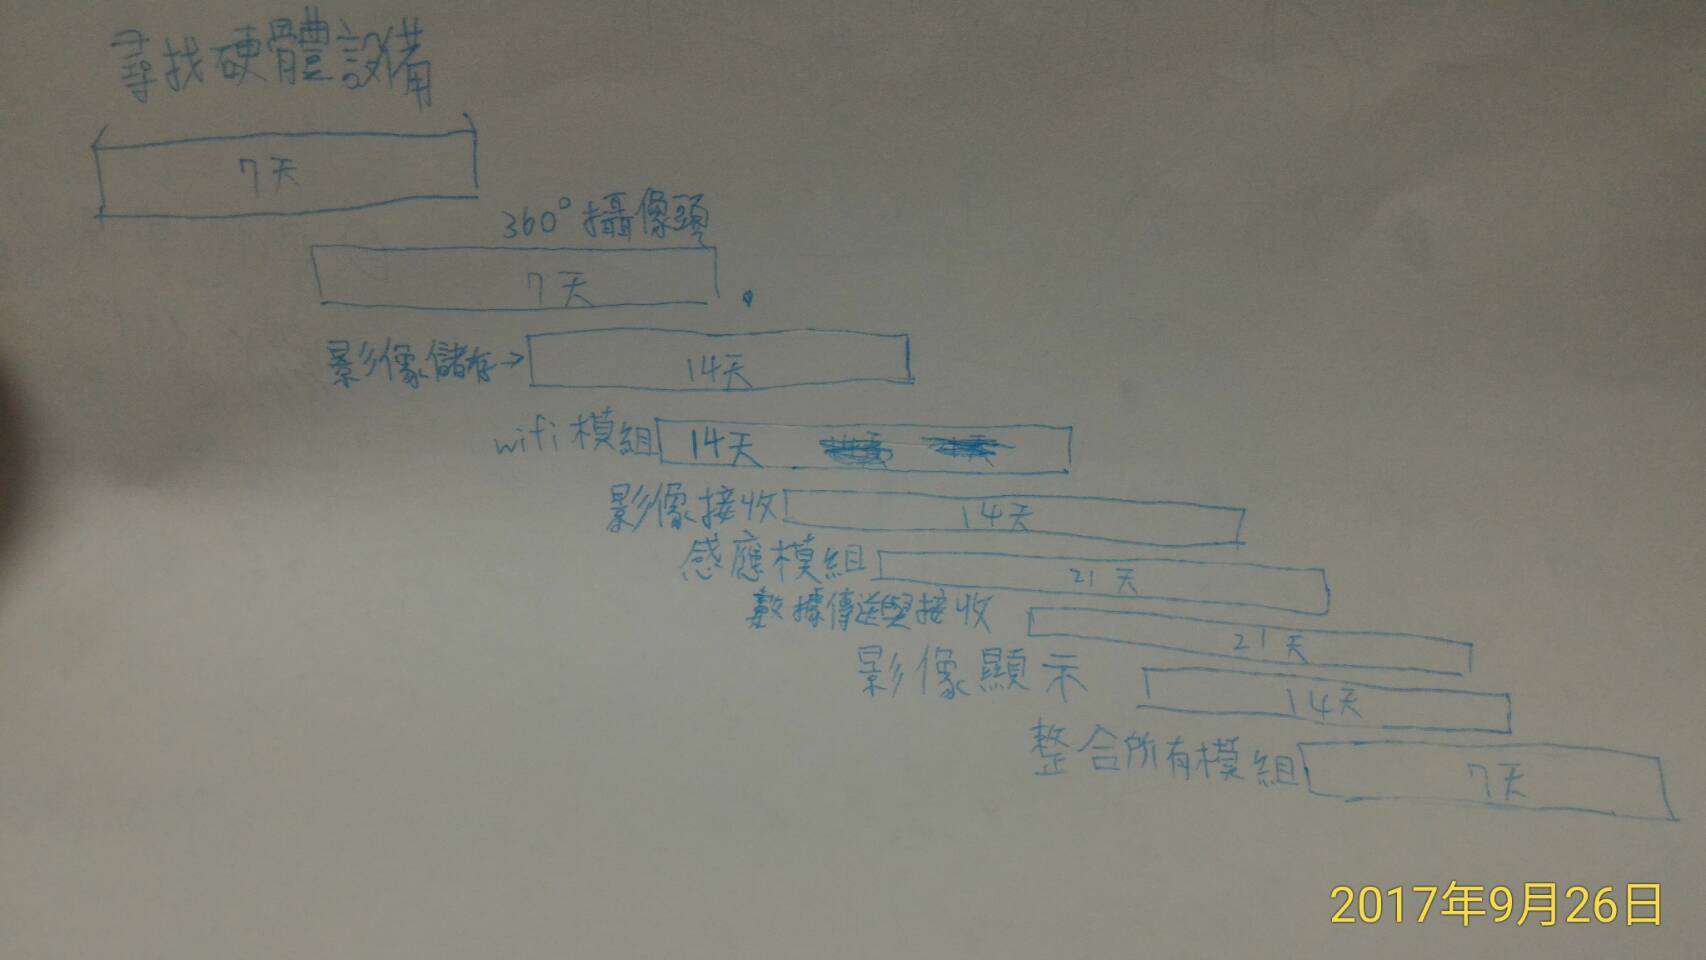 尋找硬體設備
7天
360°攝像頭
7天
影像儲存→ 14天
wifi模組 14天
影像接收 14天
感應模組 21天
數據傳送與接收 21天
影像顯示 14天
整合所有模組 7天
2017年9月26日